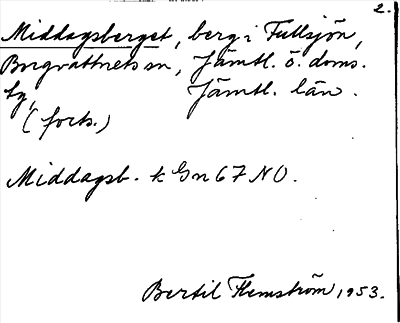 2.
Middagsberget, berg i Fullsjön,
Borgvattnets sn, Jämtl. ö. doms.
tg, Jämtl. län.
(forts.)
Middagsb. k Gn 67 NO.
Bertil Flemström, 1953.